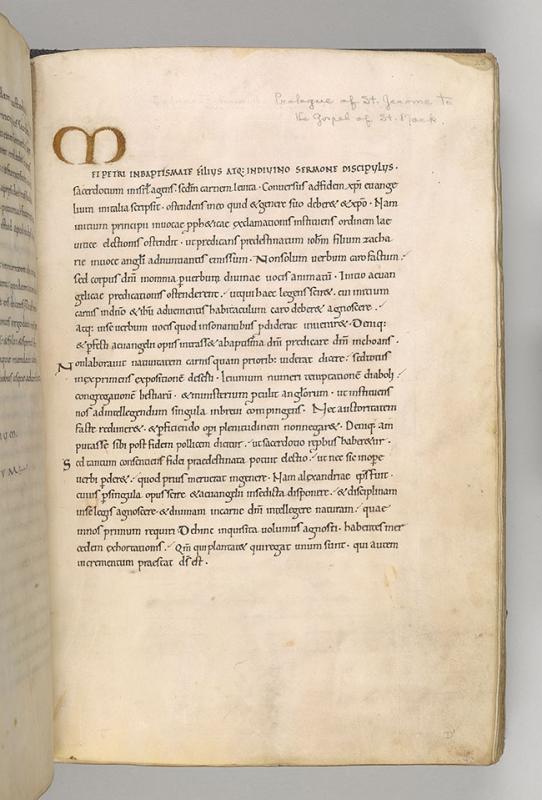 Prologue of St. Jerome to
the Gospel of St. Mark.
M
EI PETRI INBAPTISMATE FILIUS ATQ: INDIVINO SERMONE DISCIPULUS·
sacerdotium inisrł agens· sedm carnem levita· Conversus adfidem xpi evange
lium initalia scripsit· ostendens ineo quid & generi suo deber& & xpo· Nam
initium principii invocae ꝓph&icae exclamationis instituens ordinem lae
viticae electionis ostendit· ut praedicans predestinatum iohm filium zacha
riae invoce angli adnuntiantis emissum· Non solum verbum caro factum·
sed corpus dni inomnia ꝑ verbum divinae vocis animatu· Initio aevan
gelicae predicationis ostenderet· ut qui haec legens scir& cui initium
carnis indno & ihu advenientis habitaculum caro deber& agnoscere·
atq: inse verbum vocis quod insonantibus pdiderat invenir&· Deniq:
& ꝑfecti aevangelii opus intrass& abaptismo dni predicare dm inchoans·
Nonlaboravit nativitatem carnis quam priorib: viderat dicere· sed totus
inexprimens expositione deserti· Ieiunium numeri temptatione diaboli·
congregatione bestiaru· & ministerium ptulit anglorum· ut instituens
nos adintellegendum singula inbrevi compingens· Nec auctoritatem
factae rei demer&· & ꝑficiendo opi plenitudinem non negar&· Deniq: am
putasse sibi post fidem pollicem dicitur· ut sacerdotio reprobus haberetur·
Sed tantum consentiens fidei praedestinata potuit electio· ut nec sic inope
verbi pder&· quod prius meruerat ingenere· Nam alexandriae eps fuit·
cuius ꝑ singula opus scire & aevangelii inse dicta disponere· & disciplinam
inse legis agnoscere & divinam incarne dni intellegere naturam· quae
innos primum requiri Dehinc inquisita volumus agnosci· habentes mer
cedem exhortationis· Qm qui plantat & qui rigat unum sunt· qui autem
incrementum praestat ds est·